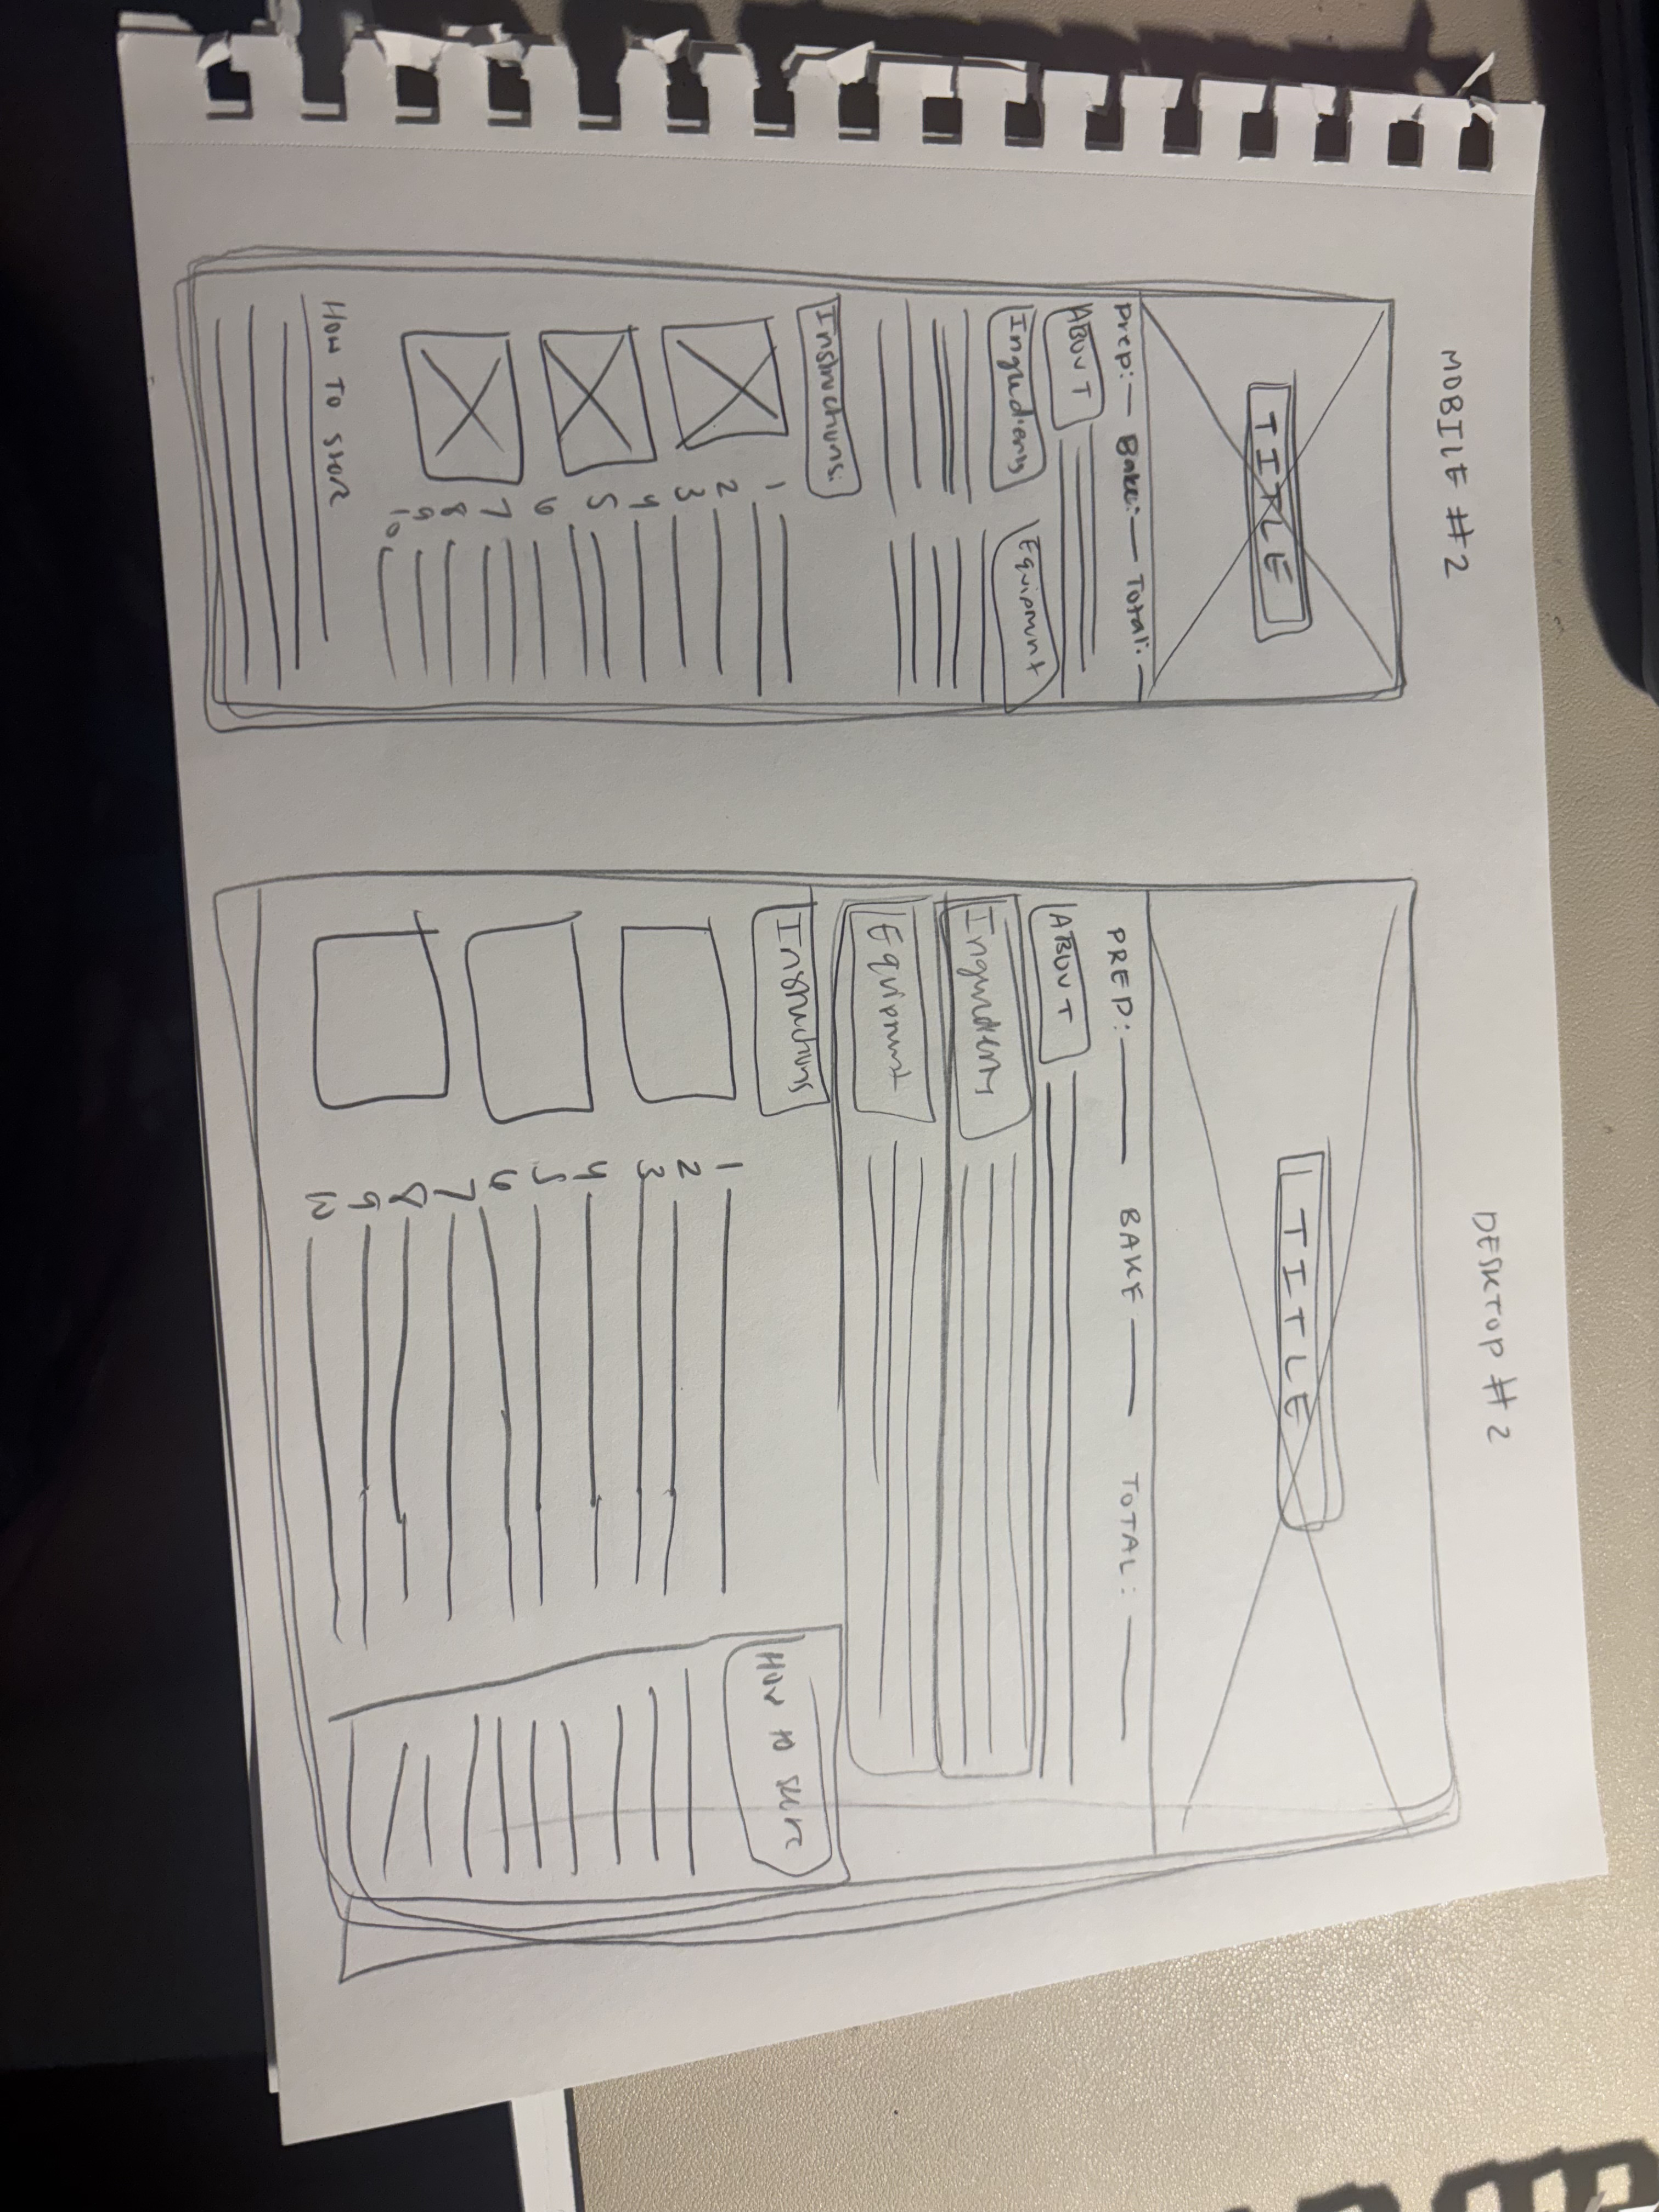 MOBILE #2
TITLE
Prep: Bake: Total:
ABOUT
Ingredients Equipment
Instructions:
1
2
3
4
5
6
7
8
9
10
HOW TO Store
DESKTOP #2
TITLE
PREP: BAKE TOTAL:
ABOUT
Ingredients
Equipment
Instructions HOW TO Store
1
2
3
4
5
6
7
8
9
10